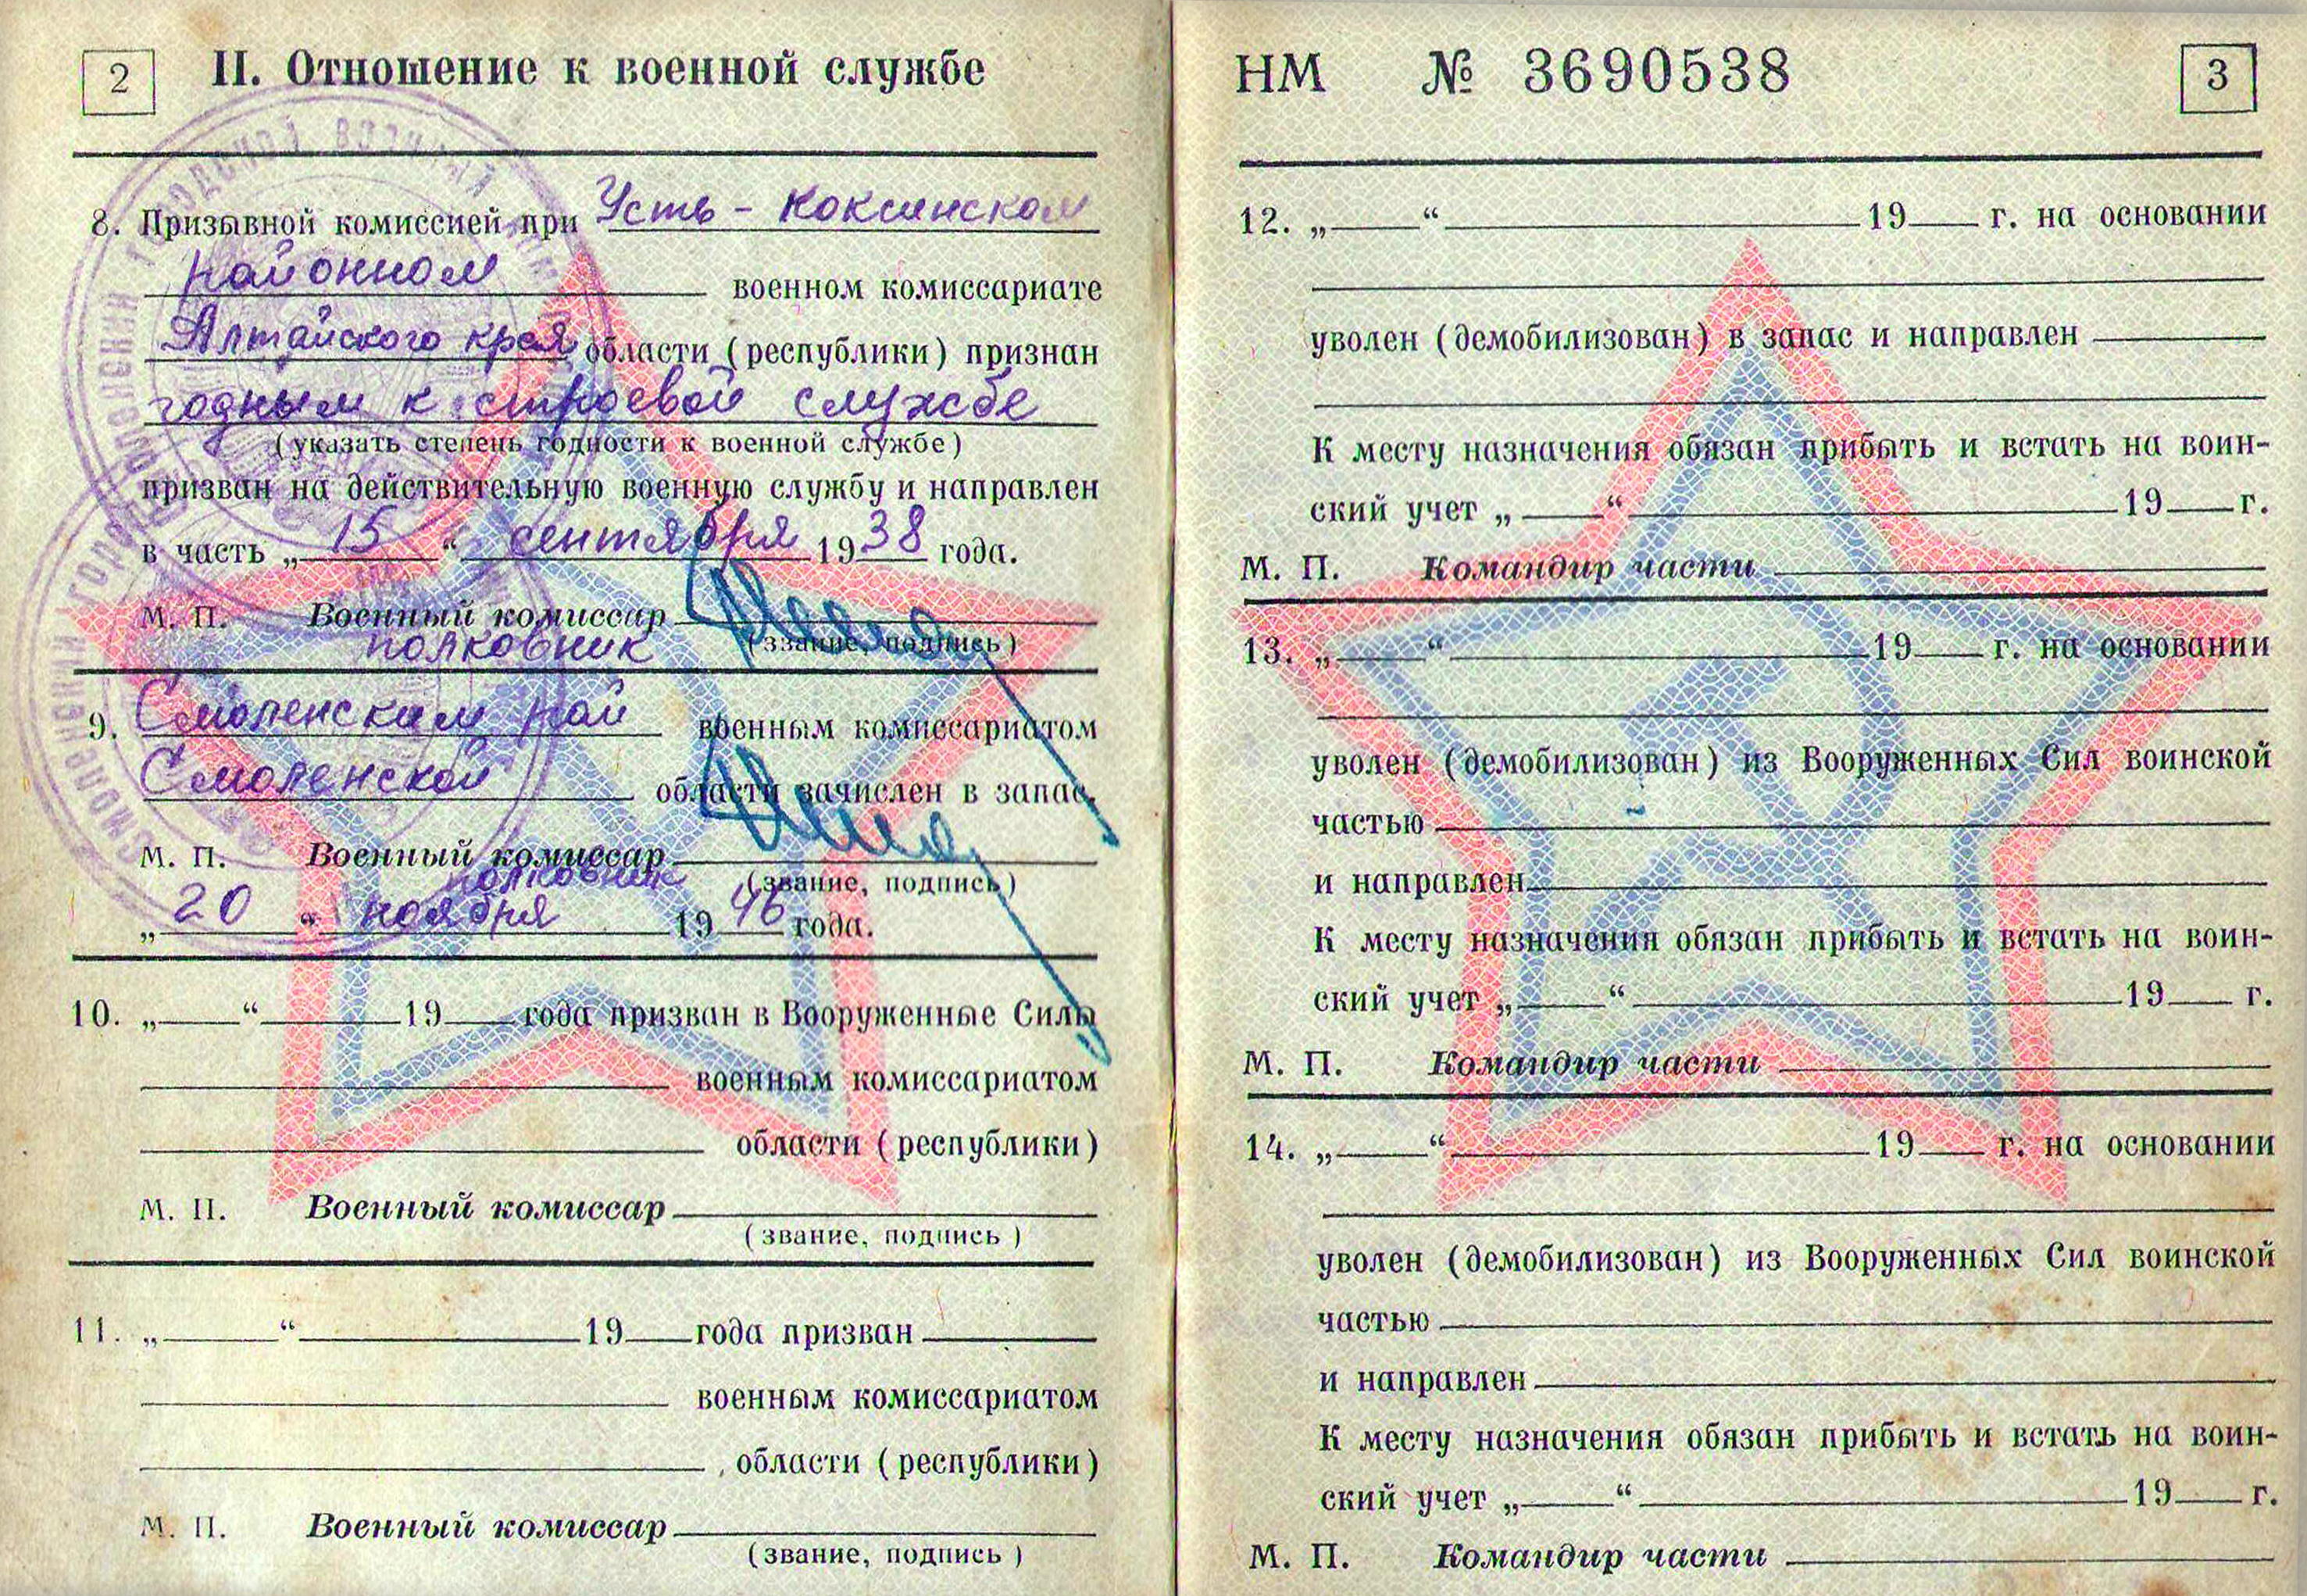 2
II. Отношение к военной службе
8. Призывной комиссией при Усть - Коксинском
районном военном комиссариате
Алтайского края области (республики) признан
годным к строевой службе
(указать степень годности к военной службе)
призван на действительную военную службу и направлен
в часть „ 15 “ сентября 1938 года.
М. П. Военный комиссар
полковник (звание, подпись)
9. Смоленским рай военным комиссариатом
Смоленской области зачислен в запас.
М. П. Военный комиссар
полковник (звание, подпись)
„ 20 “ ноября 1946 года.
10. „ “ 19 года призван в Вооруженные Силы
военным комиссариатом
области (республики)
М. П. Военный комиссар
(звание, подпись)
11. „ “ 19 года призван
военным комиссариатом
области (республики)
М. П. Военный комиссар
(звание, подпись)
НМ № 3690538
3
12. „ “ 19 г. на основании
уволен (демобилизован) в запас и направлен
К месту назначения обязан прибыть и встать на воин-
ский учет „ “ 19 г.
М. П. Командир части
13. „ “ 19 г. на основании
уволен (демобилизован) из Вооруженных Сил воинской
частью
и направлен
К месту назначения обязан прибыть и встать на воин-
ский учет „ “ 19 г.
М. П. Командир части
14. „ “ 19 г. на основании
уволен (демобилизован) из Вооруженных Сил воинской
частью
и направлен
К месту назначения обязан прибыть и встать на воин-
ский учет „ “ 19 г.
М. П. Командир части